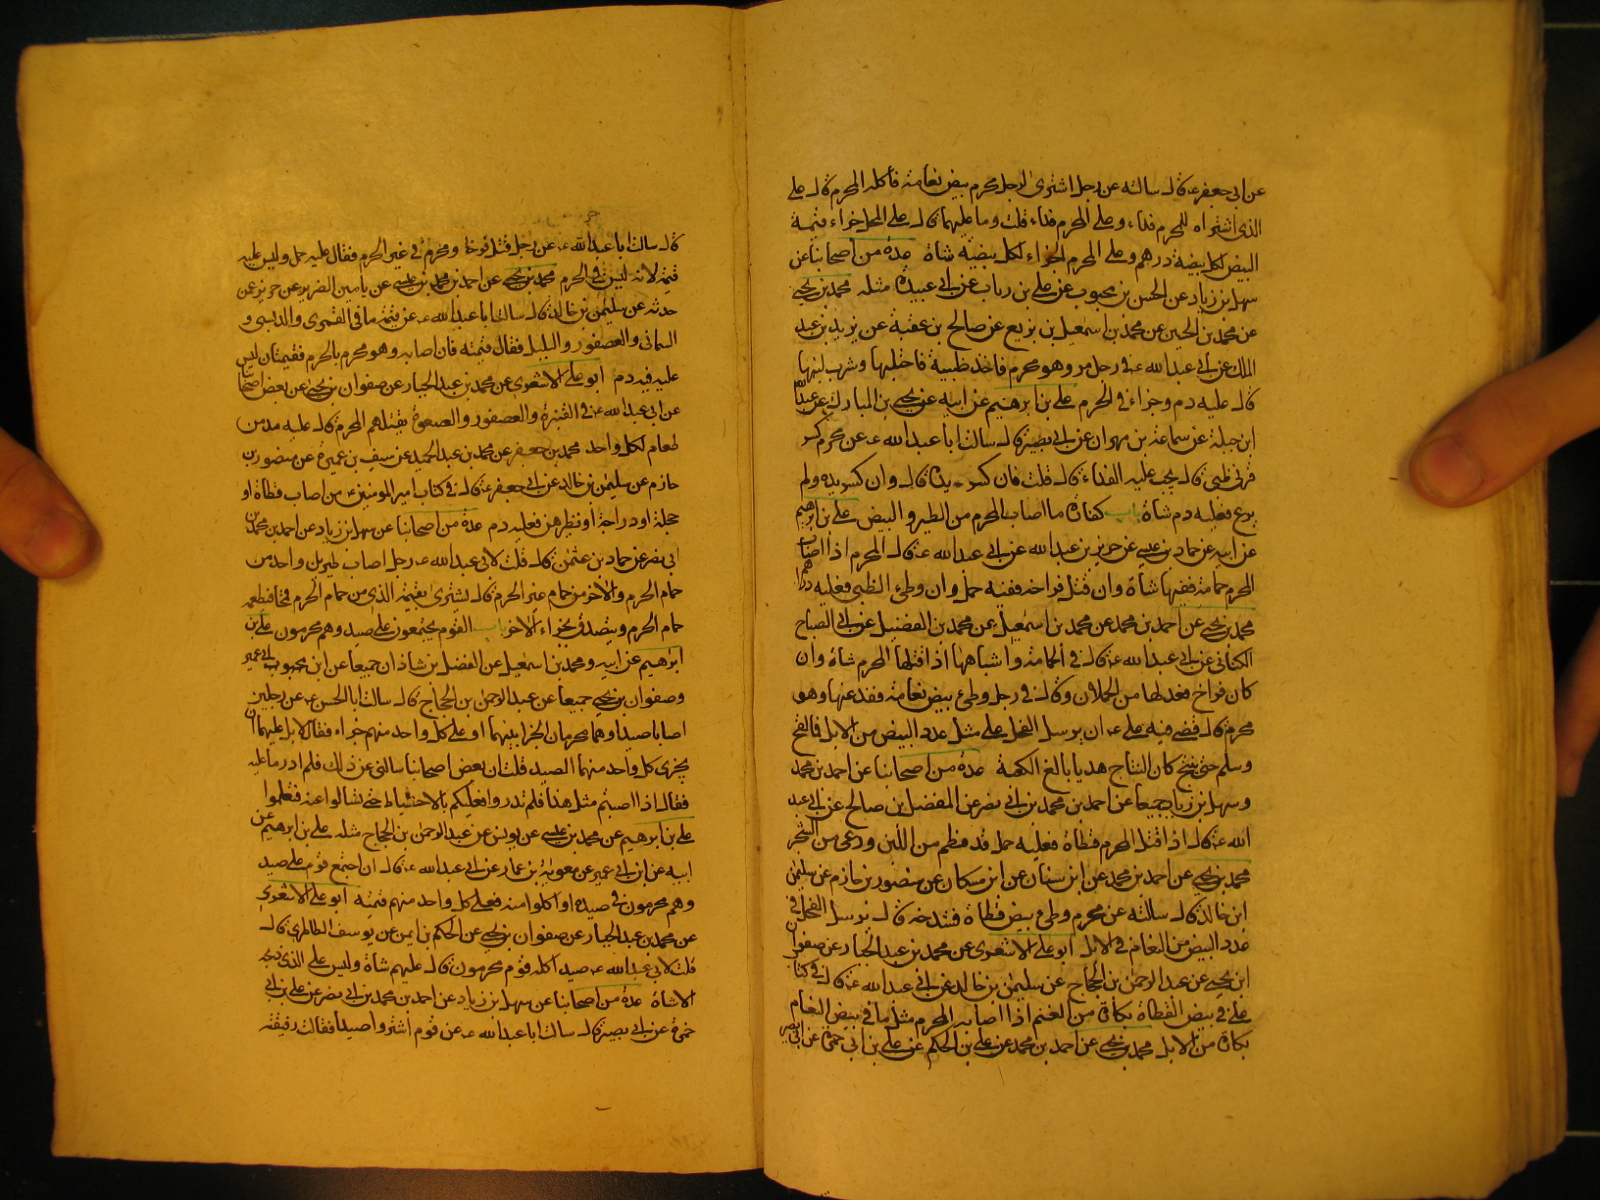 عن ابى جعفر ع قال سالته عن رجل اشترى لرجل محرم بيض نعامة فاكله المحرم قال على
الذى اشتراه للمحرم فداء وعلى المحرم فداء قلت وما عليهما قال على المحل جزاء قيمة
البيض لكل بيضة درهم وعلى المحرم الجزاء لكل بيضة شاة عدة من اصحابنا عن
سهل بن زياد عن الحسن بن محبوب عن على بن رباب عن ابى عبيدة مثله محمد بن يحيى
عن محمد بن الحسين عن محمد بن اسمعيل بن بزيع عن صالح بن عقبة عن يزيد بن عبد
الملك عن ابى عبد الله ع فى رجل مر وهو محرم فاخذ ظبية فاحتلبها وشرب لبنها
قال عليه دم وجزاء فى الحرم على بن ابرهيم عن ابيه عن يحيى بن المبارك عن عبد الله
ابن جبلة عن سماعة بن مهران عن ابى بصير قال سالت ابا عبد الله ع عن محرم كسر
قرنى ظبى قال يجب عليه الفداء قال قلت فان كسر يده قال وان كسر يده ولم
يرع فعليه دم شاة باب كفارة ما اصاب المحرم من الطير والبيض على بن ابرهيم
عن ابيه عن حماد بن عيسى عن حريز بن عبد الله عن ابى عبد الله ع قال المحرم اذا اصاب
المحرم حمامة ففيها شاة وان قتل فراخه ففيه حمل وان وطئ الظبى فعليه درهم
محمد بن يحيى عن احمد بن محمد عن محمد بن اسمعيل عن محمد بن الفضيل عن ابى الصباح
الكنانى عن ابى عبد الله ع قال فى الحمامة واشباهها اذا قتلها المحرم شاة وان
كان فراخ فعدلها من الحملان وقال فى رجل وطئ بيض نعامة ففدغها وهو
محرم قال قضى فيه على ع ان يرسل الفحل على مثل عدد البيض من الابل فما لقح
وسلم حتى ينتج كان النتاج هديا بالغ الكعبة عدة من اصحابنا عن احمد بن محمد
وسهل بن زياد جميعا عن احمد بن محمد بن ابى نصر عن المفضل بن صالح عن ابى عبد
الله ع قال اذا قتل المحرم قطاة فعليه حمل قد فطم من اللبن ورعى من الشجر
محمد بن يحيى عن احمد بن محمد عن ابن سنان عن ابن مسكان عن منصور بن حازم عن سليمن
ابن خالد قال سالته عن محرم وطئ بيض قطاة فشدخه قال يرسل الفحل فى
عدد البيض من النعام فى الابل ابو على الاشعرى عن محمد بن عبد الجبار عن صفوان
ابن يحيى عن عبد الرحمن بن الحجاج عن سليمن بن خالد عن ابى عبد الله ع قال فى كتاب
على فى بيض القطاة بكارة من الغنم اذا اصابه المحرم مثل ما فى بيض النعام
بكارة من الابل محمد بن يحيى عن احمد بن محمد عن على بن الحكم عن على بن ابى حمزة عن ابى بصير
قال سالت ابا عبد الله ع عن رجل قتل فرخا وهو محرم فى غير الحرم فقال عليه حمل وليس عليه
قيمته لانه ليس فى الحرم محمد بن يحيى عن احمد بن محمد بن عيسى عن يامين الضرير عن حريز عمن
حدثه عن سليمن بن خالد قال سالت ابا عبد الله ع عن قيمة ما فى القمرى والدبسى و
السمانى والعصفور والبلبل فقال قيمته فان اصابه وهو محرم بالحرم فقيمتان ليس
عليه فيه دم ابو على الاشعرى عن محمد بن عبد الجبار عن صفوان بن يحيى عن بعض اصحابنا
عن ابى عبد الله ع فى القنبرة والعصفور والصعوة يقتلهم المحرم قال عليه مد من
طعام لكل واحد محمد بن جعفر عن محمد بن عبد الحميد عن سيف بن عميرة عن منصور بن
حازم عن سليمن بن خالد عن ابى جعفر ع قال فى كتاب امير المومنين ع من اصاب قطاة او
حجلة او دراجة او نظيرهن فعليه دم عدة من اصحابنا عن سهل بن زياد عن احمد بن محمد بن
ابى نصر عن حماد بن عثمن قال قلت لابى عبد الله ع رجل اصاب طيرين واحد من
حمام الحرم والاخر من حمام غير الحرم قال يشترى بقيمة الذى من حمام الحرم قمحا فيطعمه
حمام الحرم ويتصدق بجزاء الاخر باب القوم يجتمعون على صيد وهم محرمون على بن
ابرهيم عن ابيه ومحمد بن اسمعيل عن الفضل بن شاذان جميعا عن ابن ابى عمير
وصفوان بن يحيى جميعا عن عبد الرحمن بن الحجاج قال سالت ابا الحسن ع عن رجلين
اصابا صيدا وهما محرمان الجزا بينهما او على كل واحد منهم جزاء فقال لا بل عليهما ان
يجزى كل واحد منهما الصيد قلت ان بعض اصحابنا سالنى عن ذلك فلم ادر ما عليه
فقال اذا اصبتم مثل هذا فلم تدروا فعليكم بالاحتياط حتى تسالوا عنه فتعلموا
على بن ابرهيم عن محمد بن عيسى عن يونس عن عبد الرحمن بن الحجاج مثله على بن ابرهيم عن
ابيه عن ابن ابى عمير عن معوية بن عمار عن ابى عبد الله ع قال ان اجتمع قوم على صيد
وهم محرمون فى صيده او اكلوا منه فعلى كل واحد منهم قيمته ابو على الاشعرى
عن محمد بن عبد الجبار عن صفوان بن يحيى عن الحكم بن ايمن عن يوسف الطاطرى قال
قلت لابى عبد الله ع صيد اكله قوم محرمون قال عليهم شاة وليس على الذى ذبحه
الا شاة عدة من اصحابنا عن سهل بن زياد عن احمد بن محمد بن ابى نصر عن على بن ابى
حمزة عن ابى بصير قال سالت ابا عبد الله ع عن قوم اشتروا صيدا فقالت رفيقته